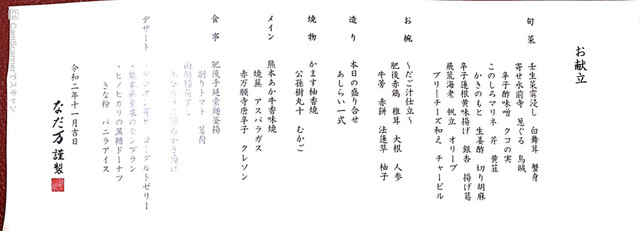 お献立
旬菜
壬生菜菜浸し 白舞茸 蟹身
寄せ水前寺 葱ぐる 烏賊
辛子酢味噌 クコの実
このしろマリネ 芹 黄韮
かきのもと 生姜酢 切り胡麻
辛子蓮根黄味揚げ 銀杏 揚げ葛
飛荒海老 帆立 オリーブ
ブリーチーズ和え チャービル
お椀
〜だご汁仕立〜
肥後赤鶏 椎茸 大根 人参
牛蒡 赤餅 法蓮草 柚子
造り
本日の盛り合せ
あしらい一式
焼物
かます柚香焼
公孫樹丸十 むかご
メイン
熊本あか牛香味焼
焼葱 アスパラガス
赤万願寺唐辛子 クレソン
食事
肥後手延素麺釜揚
削りトマト 茗荷
デザート
ヨーグルトゼリー
熊本県産栗のモンブラン
・ヒノヒカリの黒糖ドーナツ
きな粉 バニラアイス
令和二年十一月吉日
なだ万 謹製
CamScannerでスキャン